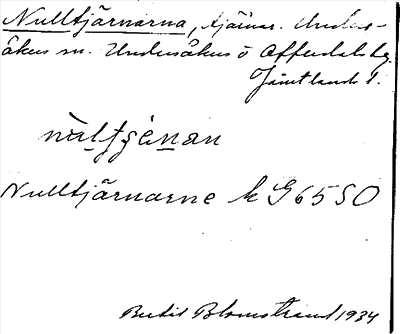 Nulltjärnarna, tjärnar. Unders-
åkers sn. Undersåkers o Offerdals tg.
Jämtlands l.
nàltşènan
Nulltjärnarne k G65SO
Bertil Blomstrand 1934